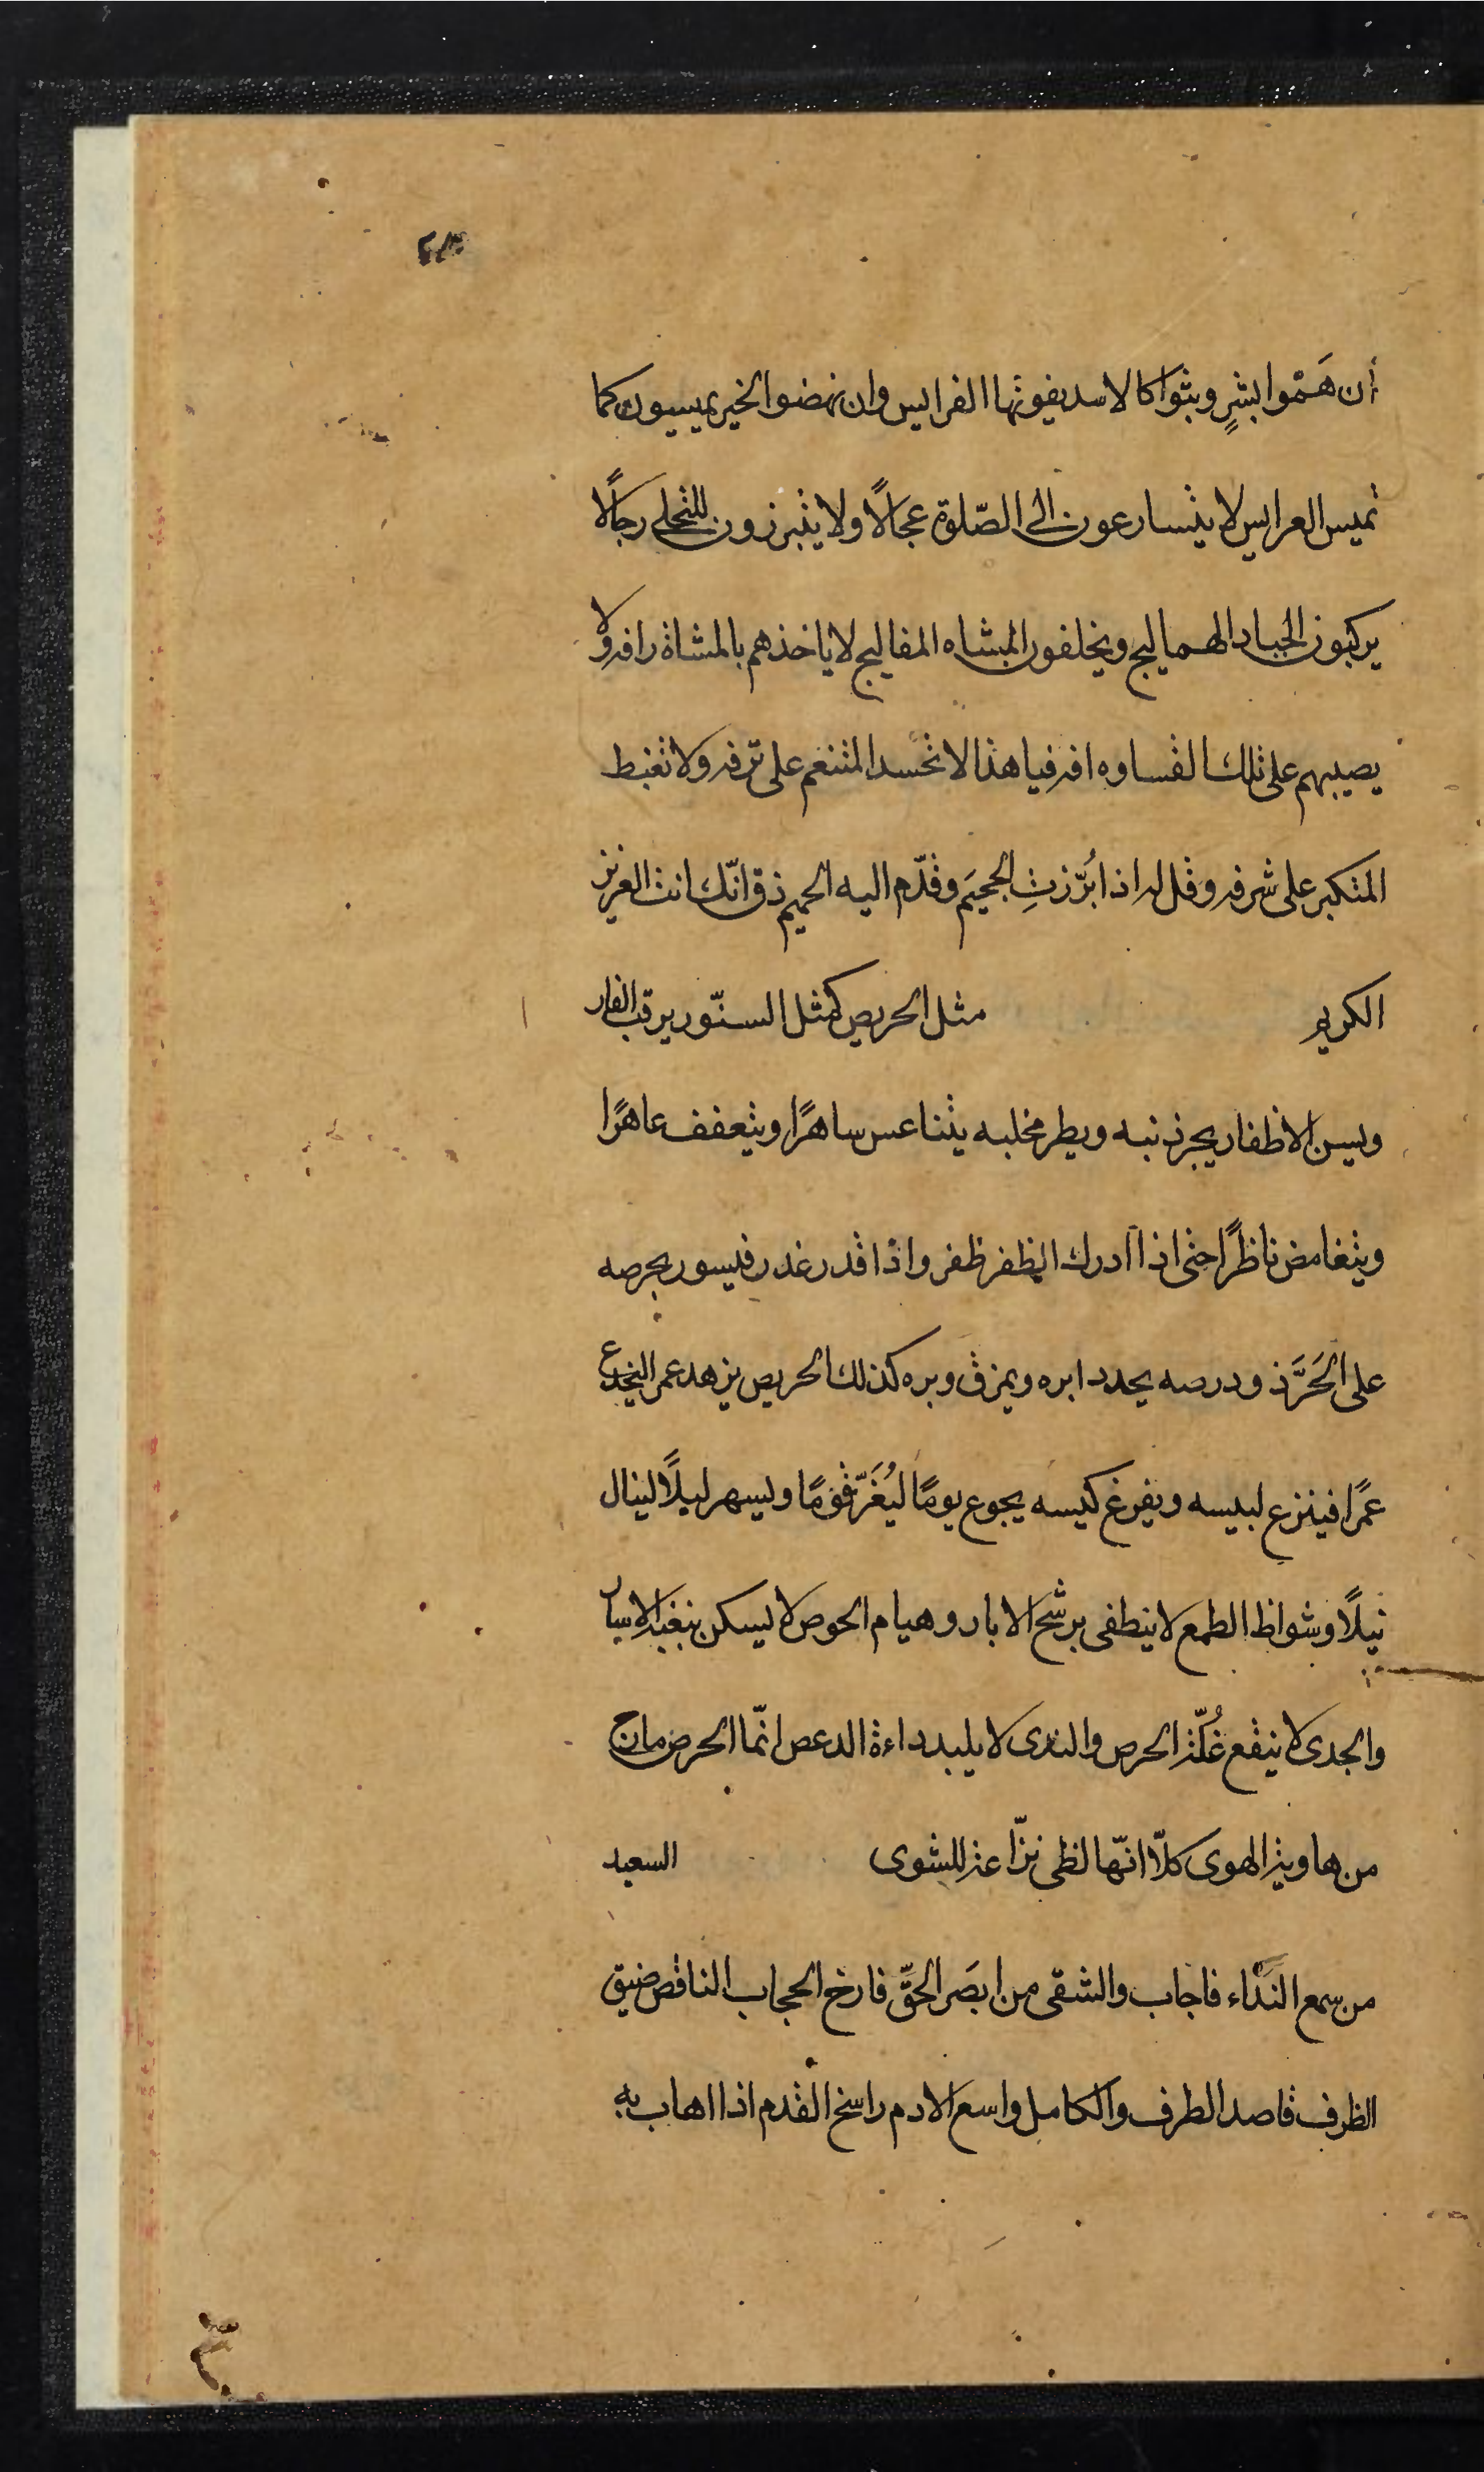 أن هَمّوا بشرٍ وثبوا كالاسد يفوتها الفرايس وان نهضوا لخير يميسون كما
تميس العرايس لا يتسارعون الى الصّلوة عجالًا ولا يتبرزون للتخلى رجالًا
يركبون الجياد الهماليج ويخلفون المشاه المفاليج لا ياخذهم بالمشاة رافه ولا
يصيبهم على تلك القساوه افه فيا هذا لا تحسد المتنعم على ترفه ولا تغبط
المتكبر على شرفه وقل له اذا بُرّزتِ الجحيَم وقدّم اليه الحميم ذق انّك انت العزيز
الكريم مثل الحريص كمثل السنّور يرقب الفار
ويسن الاظفار يجر ذنبه ويطر مخلبه يتناعس ساهرًا ويتعفف عاهرًا
ويتغامض ناظرًا حتى اذا ادرك الظفر ظفر واذا قدر غدر فيسور بحرصه
على الجَرَّذ ودرصه يحدد ابره ويمزق وبره كذلك الحريص يزهد عمر ليخدع
عمرًا فينزع لبيسه ويفرغ كيسه يجوع يومًا ليُغَرّ قومًا ويسهر ليلًا لينال
نيلًا وشواظ الطمع لا ينطفى برشح الابار وهيام الحوص لا يسكن بنغبة الاسار
والجدى لا ينقع غُلّة الحرص والندى لا يلبد داءة الدعص انّما الحرص مارج
من هاوية الهوى كلّا انّها لظى نزّاعة للشوى السعيد
من سمع النَدّاء فاجاب والشقى من ابصَر الحقّ فارخ الحجاب الناقص ضيق
الظرف قاصد الطرف والكامل واسع الادم راسخ القدم اذا اهاب به